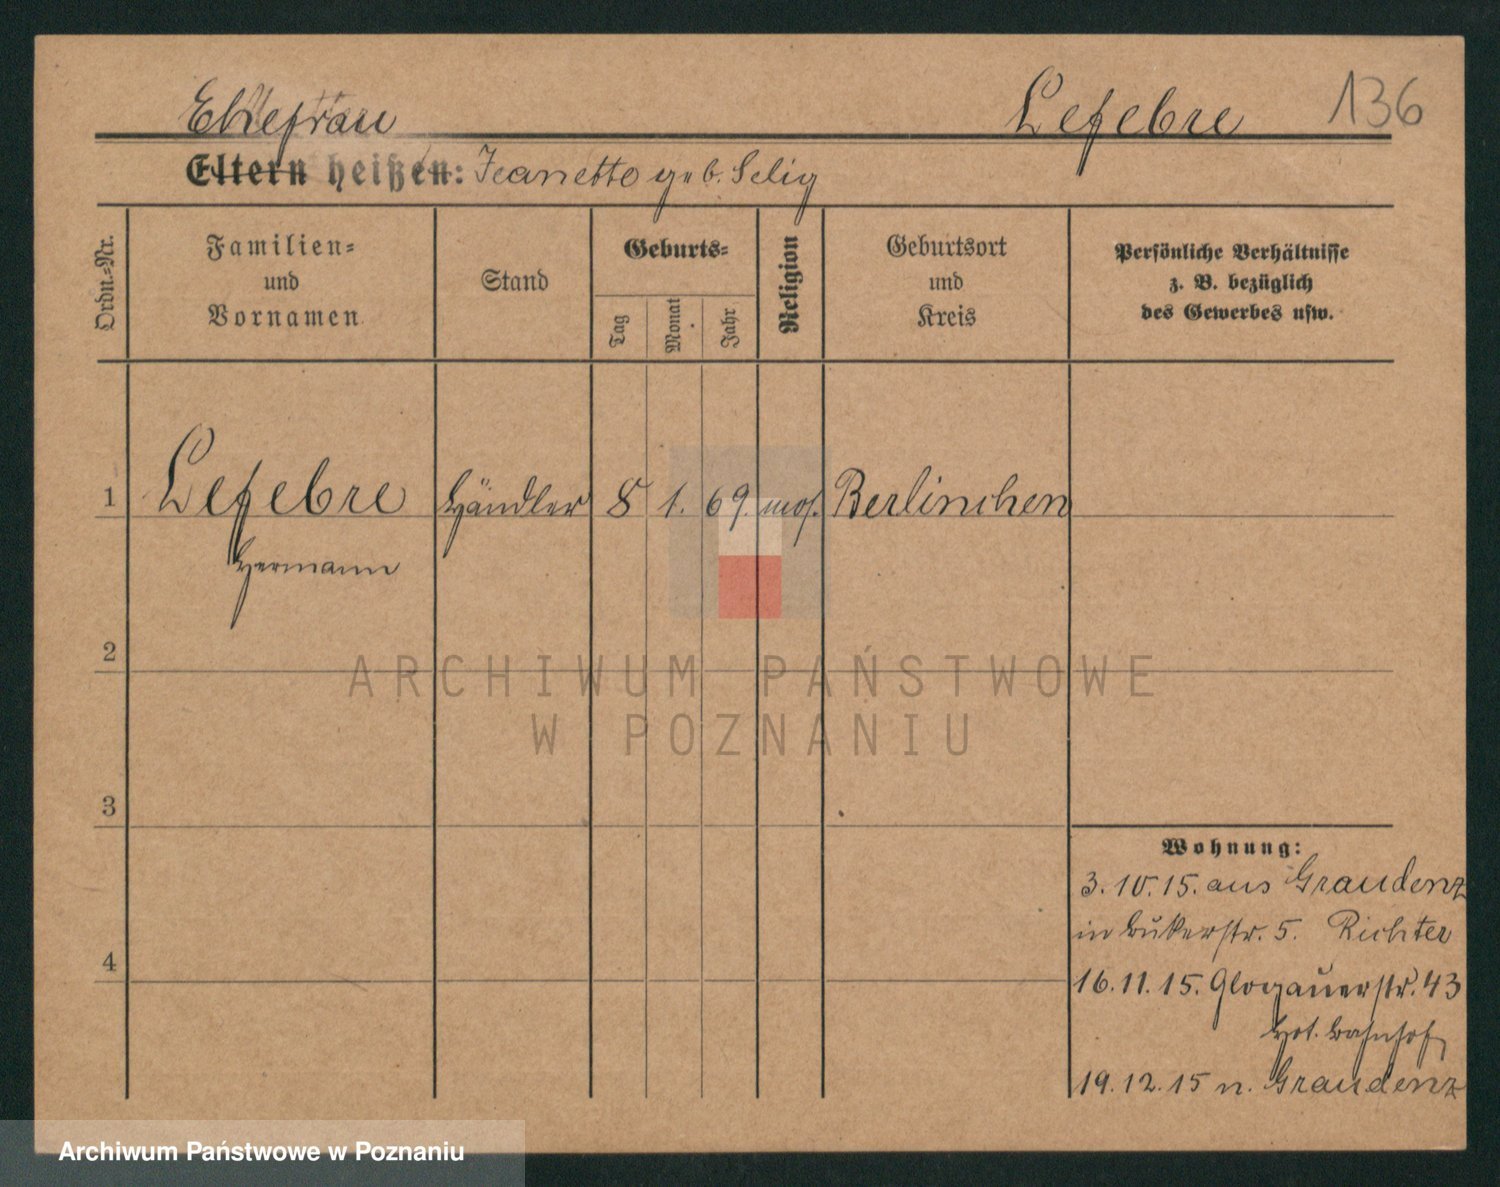 Ehefrau Lefebre 136
Eltern heißen: Jeanette geb. Selig
Ordn.=Nr.
Familien=
und
Vornamen
Stand
Geburts=
Tag
Monat
Jahr
Religion
Geburtsort
und
Kreis
Persönliche Verhältnisse
z. B. bezüglich
des Gewerbes usw.
1 Lefebre Händler 8 1. 69. mos. Berlinchen
Hermann
2
ARCHIWUM PAŃSTWOWE
W POZNANIU
3
Wohnung:
3.10.15. aus Graudenz
in Bukerstr. 5. Richter
4
16.11.15. Glogauerstr. 43
Hot. Bahnhof
19.12.15 n. Graudenz
Archiwum Państwowe w Poznaniu